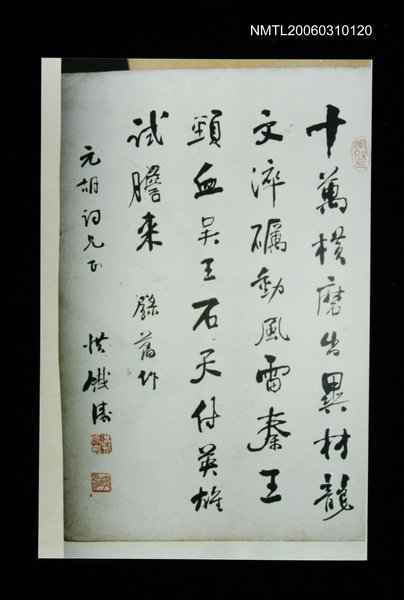 NMTL20060310120
十萬橫磨出異材龍
文淬礪動風雷秦王
頸血吳王石天付英雄
試膽來 錄舊作
元胡詞兄正 洪鐵濤